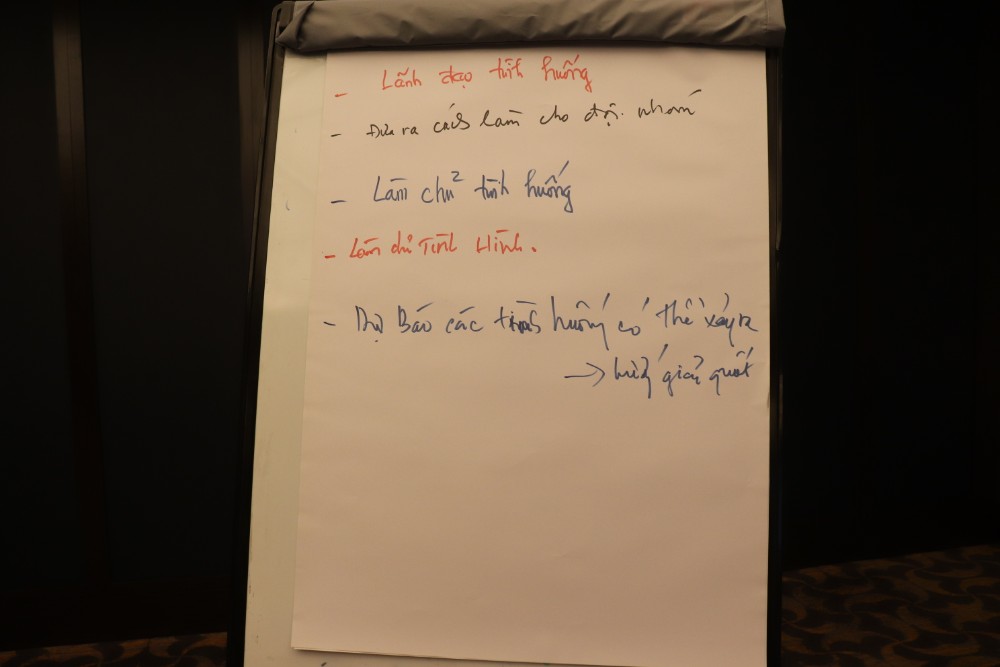 - Lãnh đạo tình huống
- Đưa ra cách làm cho đội. nhóm
- Làm chủ tình huống
- Làm chủ Tình Hình.
- Dự Báo các tình huống có thể xảy ra
→ hướng giải quyết